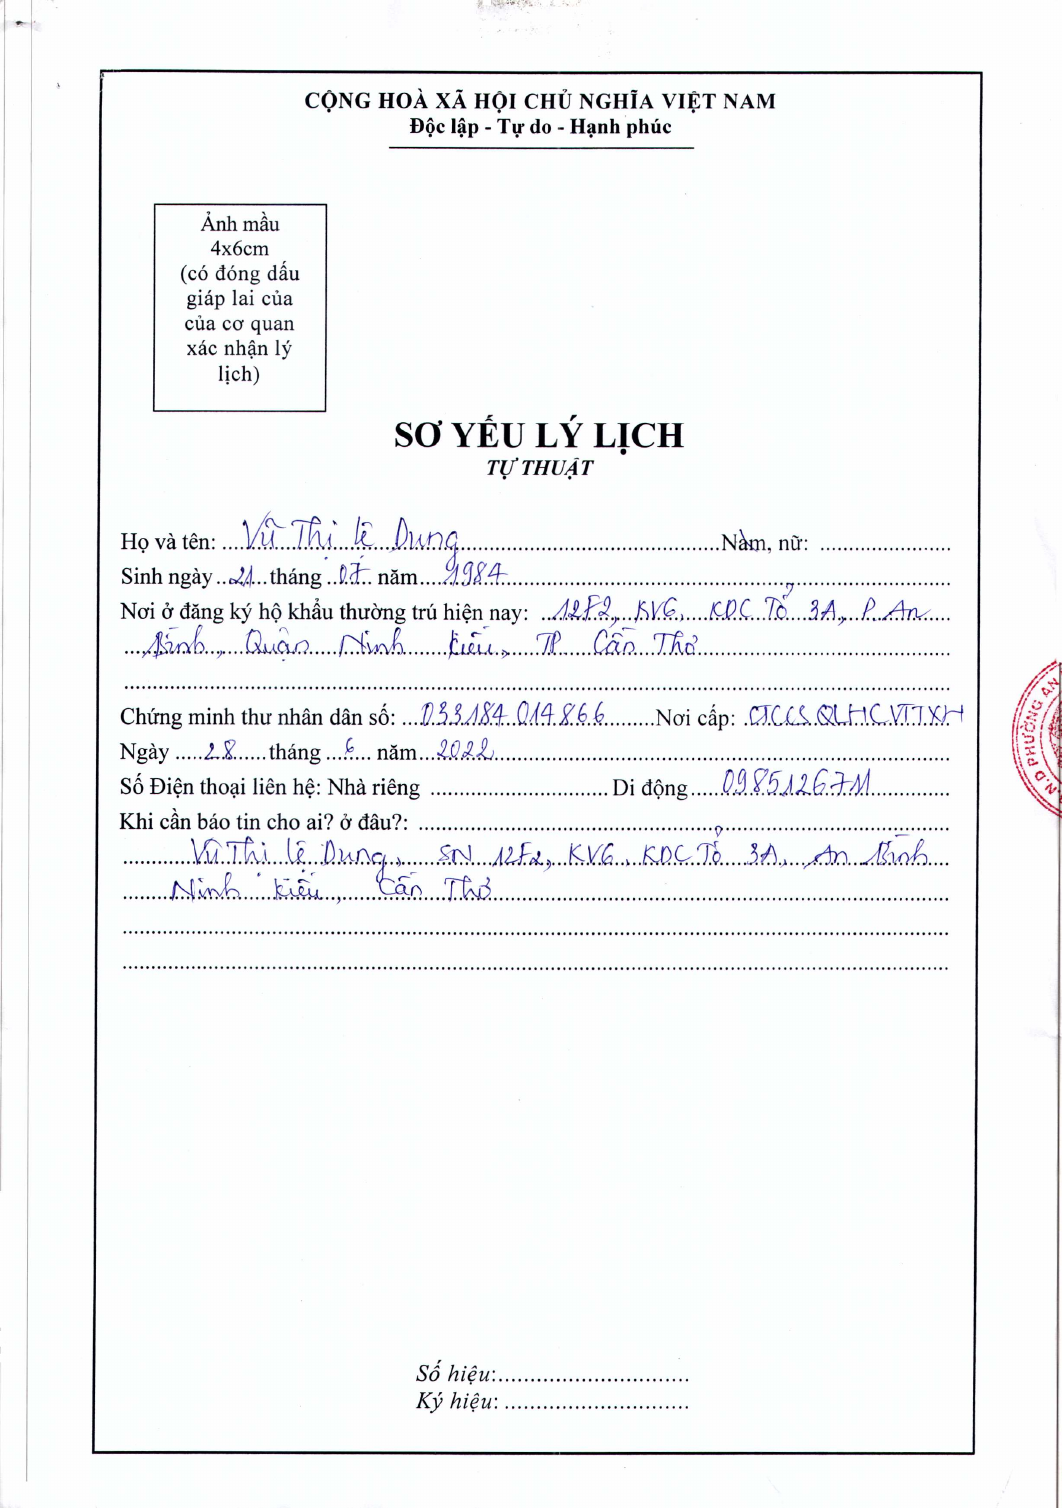 CỘNG HOÀ XÃ HỘI CHỦ NGHĨA VIỆT NAM
Độc lập - Tự do - Hạnh phúc
Ảnh mầu
4x6cm
(có đóng dấu
giáp lai của
của cơ quan
xác nhận lý
lịch)
SƠ YẾU LÝ LỊCH
TỰ THUẬT
Họ và tên: Vũ Thị Lệ Dung Nàm, nữ:
Sinh ngày 21 tháng 07 năm 1984
Nơi ở đăng ký hộ khẩu thường trú hiện nay: 12F2, KV6, KDC Tổ 3A, P. An
Bình, Quận Ninh Kiều, TP Cần Thơ
Chứng minh thư nhân dân số: 033184014866 Nơi cấp: CTCCSQLHCVTTXH
Ngày 28 tháng 6 năm 2022
Số Điện thoại liên hệ: Nhà riêng Di động 0985126711
Khi cần báo tin cho ai? ở đâu?:
Vũ Thị Lệ Dung, SN 12F2, KV6, KDC Tổ 3A, An Bình
Ninh Kiều, Cần Thơ
N.D PHƯỜNG AN
Số hiệu:
Ký hiệu: